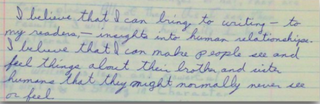 I believe that I can bring to writing – to
my readers, – insights into human relationships.
I believe that I can make people see and
feel things about their brother and sister
humans that they might normally never see
or feel